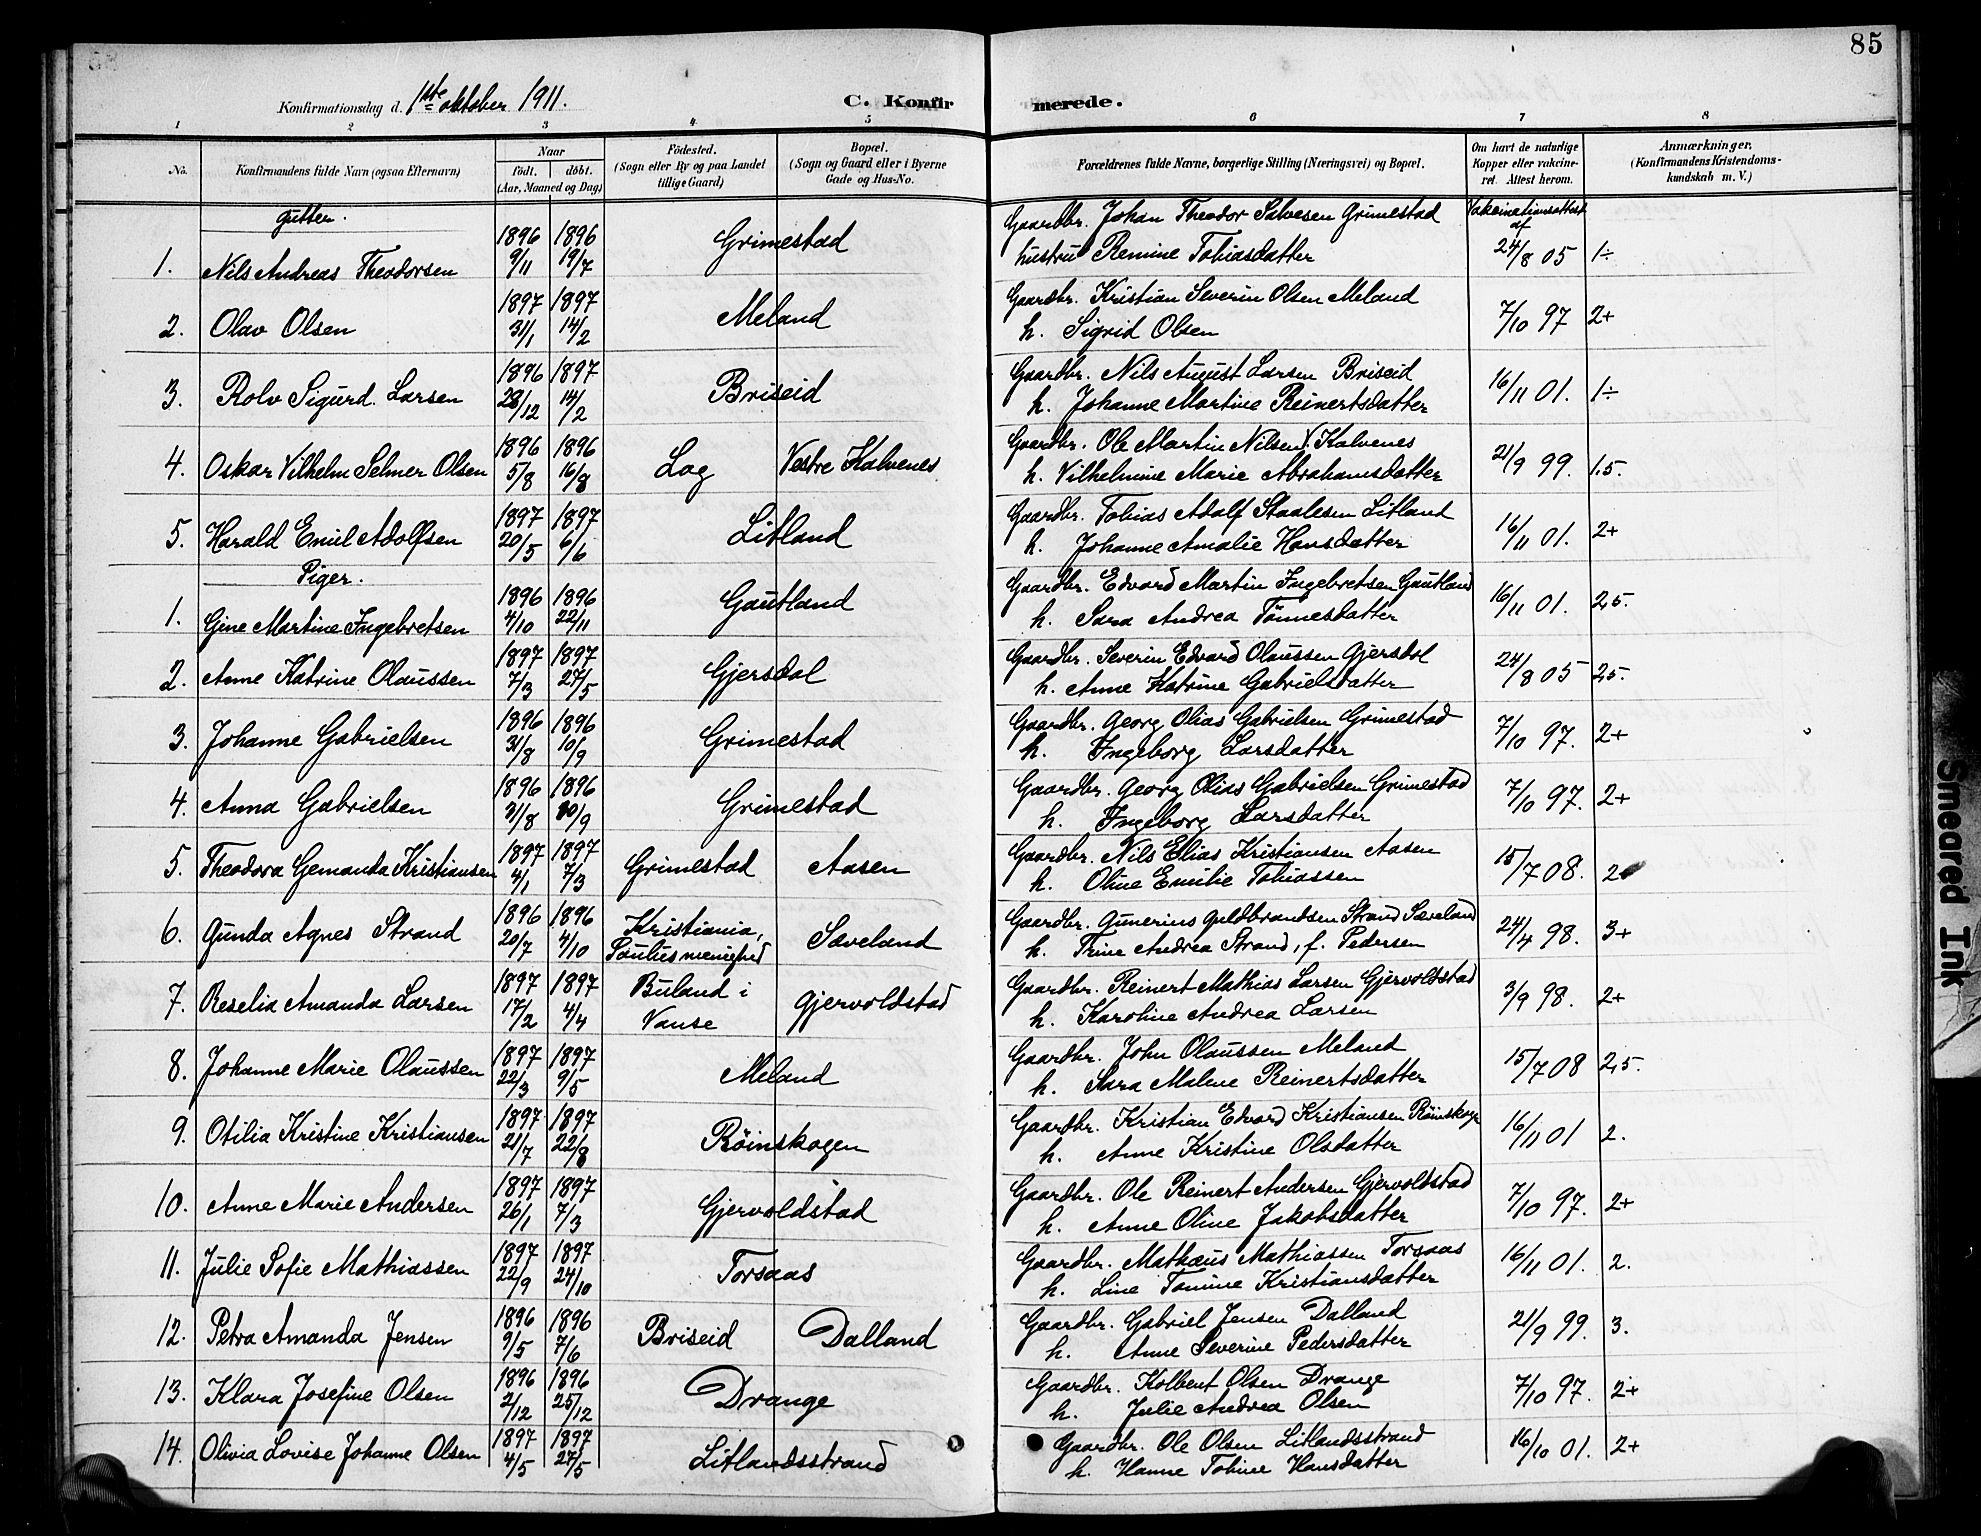 85
Konfirmationsdag d. 1ste oktober 1911. C. Konfirmerede.
1 2 3 4 5 6 7 8
No. Konfirmandens fulde Navn (ogsaa Efternavn) Naar født. døbt. (Aar, Maaned og Dag) Fødested. (Sogn eller By og paa Landet tillige Gaard) Bopæl. (Sogn og Gaard eller i Byerne Gade og Hus-No. Forældrenes fulde Navne, borgerlige Stilling (Næringsvei) og Bopæl. Om havt de naturlige Kopper eller vakcineret. Attest herom. Anmærkninger. (Konfirmandens Kristendomskundskab m. V.)
Gutter.
1. Nils Andreas Theodorsen 1896 9/11 1896 19/7 Grimestad Gaardbr. Johan Theodor Salvesen Grimestad Vakcinationsattest af
hustru Remine Tobiasdatter 24/8 05 1÷
2. Olav Olsen 1897 31/1 1897 14/2 Meland Gaardbr. Kristian Severin Olsen Meland
h. Sigrid Olsen 7/10 97 2+
3. Rolv Sigurd. Larsen 1896 28/12 1897 14/2 Briseid Gaardbr. Nils August Larsen Briseid
h. Johanne Martine Reinertsdatter 16/11 01. 1÷
4. Oskar Vilhelm Selmer Olsen 1896 5/8 1896 16/8 Log Vestre Kalvenes Gaardbr. Ole Martin Nilsen V. Kalvenes
h. Vilhelmine Marie Abrahamsdatter 21/9 99. 1.5.
5. Harald Emil Adolfsen 1897 20/5 1897 6/6 Litland Gaardbr. Tobias Adolf Staalesen Litland
h. Johanne Amalie Hansdatter 16/11 01. 2+
Piger.
1. Gine Martine Ingebretsen 1896 4/10 1896 22/11 Gautland Gaardbr. Edvard Martin Ingebretsen Gautland
h. Sara Andrea Tønnesdatter 16/11 01. 2,5.
2. Anne Katrine Olaussen 1897 7/3 1897 27/5 Gjersdal Gaardbr. Severin Edvard Olaussen Gjersdal
h. Anne Katrine Gabrielsdatter 24/8 05 2,5.
3. Johanne Gabrielsen 1896 31/8 1896 10/9 Grimestad Gaardbr. Georg Olias Gabrielsen Grimestad
h. Ingeborg Larsdatter 7/10 97. 2+
4. Anna Gabrielsen 1896 31/8 1896 10/9 Grimestad Gaardbr. Georg Olias Gabrielsen Grimestad
h. Ingeborg Larsdatter 7/10 97. 2+
5. Theodora Gemanda Kristiansen 1897 4/1 1897 7/3 Grimestad Aasen Gaardbr. Nils Elias Kristiansen Aasen
h. Oline Emilie Tobiassen 15/7 08. 2
6. Gunda Agnes Strand 1896 20/7 1896 4/10 Kristiania, Paulus menighed Sæveland Gaardbr. Gunerius Guldbrandsen Strand Sæveland
h. Trine Andrea Strand, f. Pedersen 24/4 98. 3+
7. Reselia Amanda Larsen 1897 17/2 1897 4/4 Buland i Vanse Gjervoldstad Gaardbr. Reinert Mathias Larsen Gjervoldstad
h. Karoline Andrea Larsen 3/9 98. 2+
8. Johanne Marie Olaussen 1897 22/3 1897 9/5 Meland Gaardbr. John Olaussen Meland
h. Sara Malene Reinertsdatter 15/7 08 2,5.
9. Otilia Kristine Kristiansen 1897 21/7 1897 22/8 Röinskogen Gaardbr. Kristian Edvard Kristiansen Röinskoge
h. Anne Kristine Olsdatter 16/11 01 2.
10. Anne Marie Andersen 1897 26/1 1897 7/3 Gjervoldstad Gaardbr. Ole Reinert Andersen Gjervoldstad
h. Anne Oline Jakobsdatter 7/10 97. 2+
11. Julie Sofie Mathiassen 1897 22/9 1897 24/10 Torsaas Gaardbr. Mathæus Mathiassen Torsaas
h. Line Tomine Kristiansdatter 16/11 01. 2.
12. Petra Amanda Jensen 1896 9/5 1896 7/6 Briseid Dalland Gaardbr. Gabriel Jensen Dalland
h. Anne Severine Pedersdatter 21/9 99. 3.
13. Klara Josefine Olsen 1896 2/12 1896 25/12 Drange Gaardbr. Kolbent Olsen Drange
h. Julie Andrea Olsen 7/10 97. 2+
14. Olivia Lovise Johanne Olsen 1897 4/5 1897 27/5 Litlandsstrand Gaardbr. Ole Olsen Litlandsstrand
h. Hanne Tobine Hansdatter 16/10 01. 2+
Smeared Ink